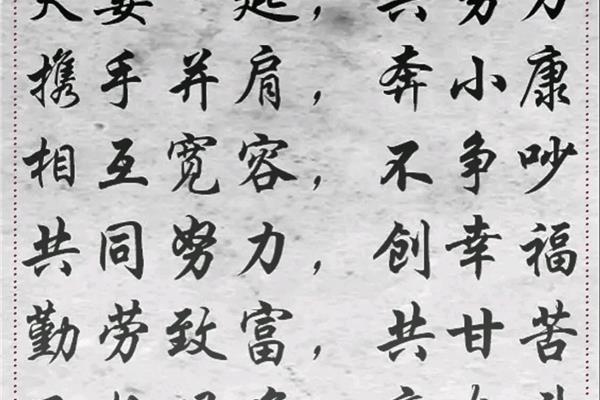 夫妻一起，共努力
携手并肩，奔小康
相互宽容，不争吵
共同努力，创幸福
勤劳致富，共甘苦